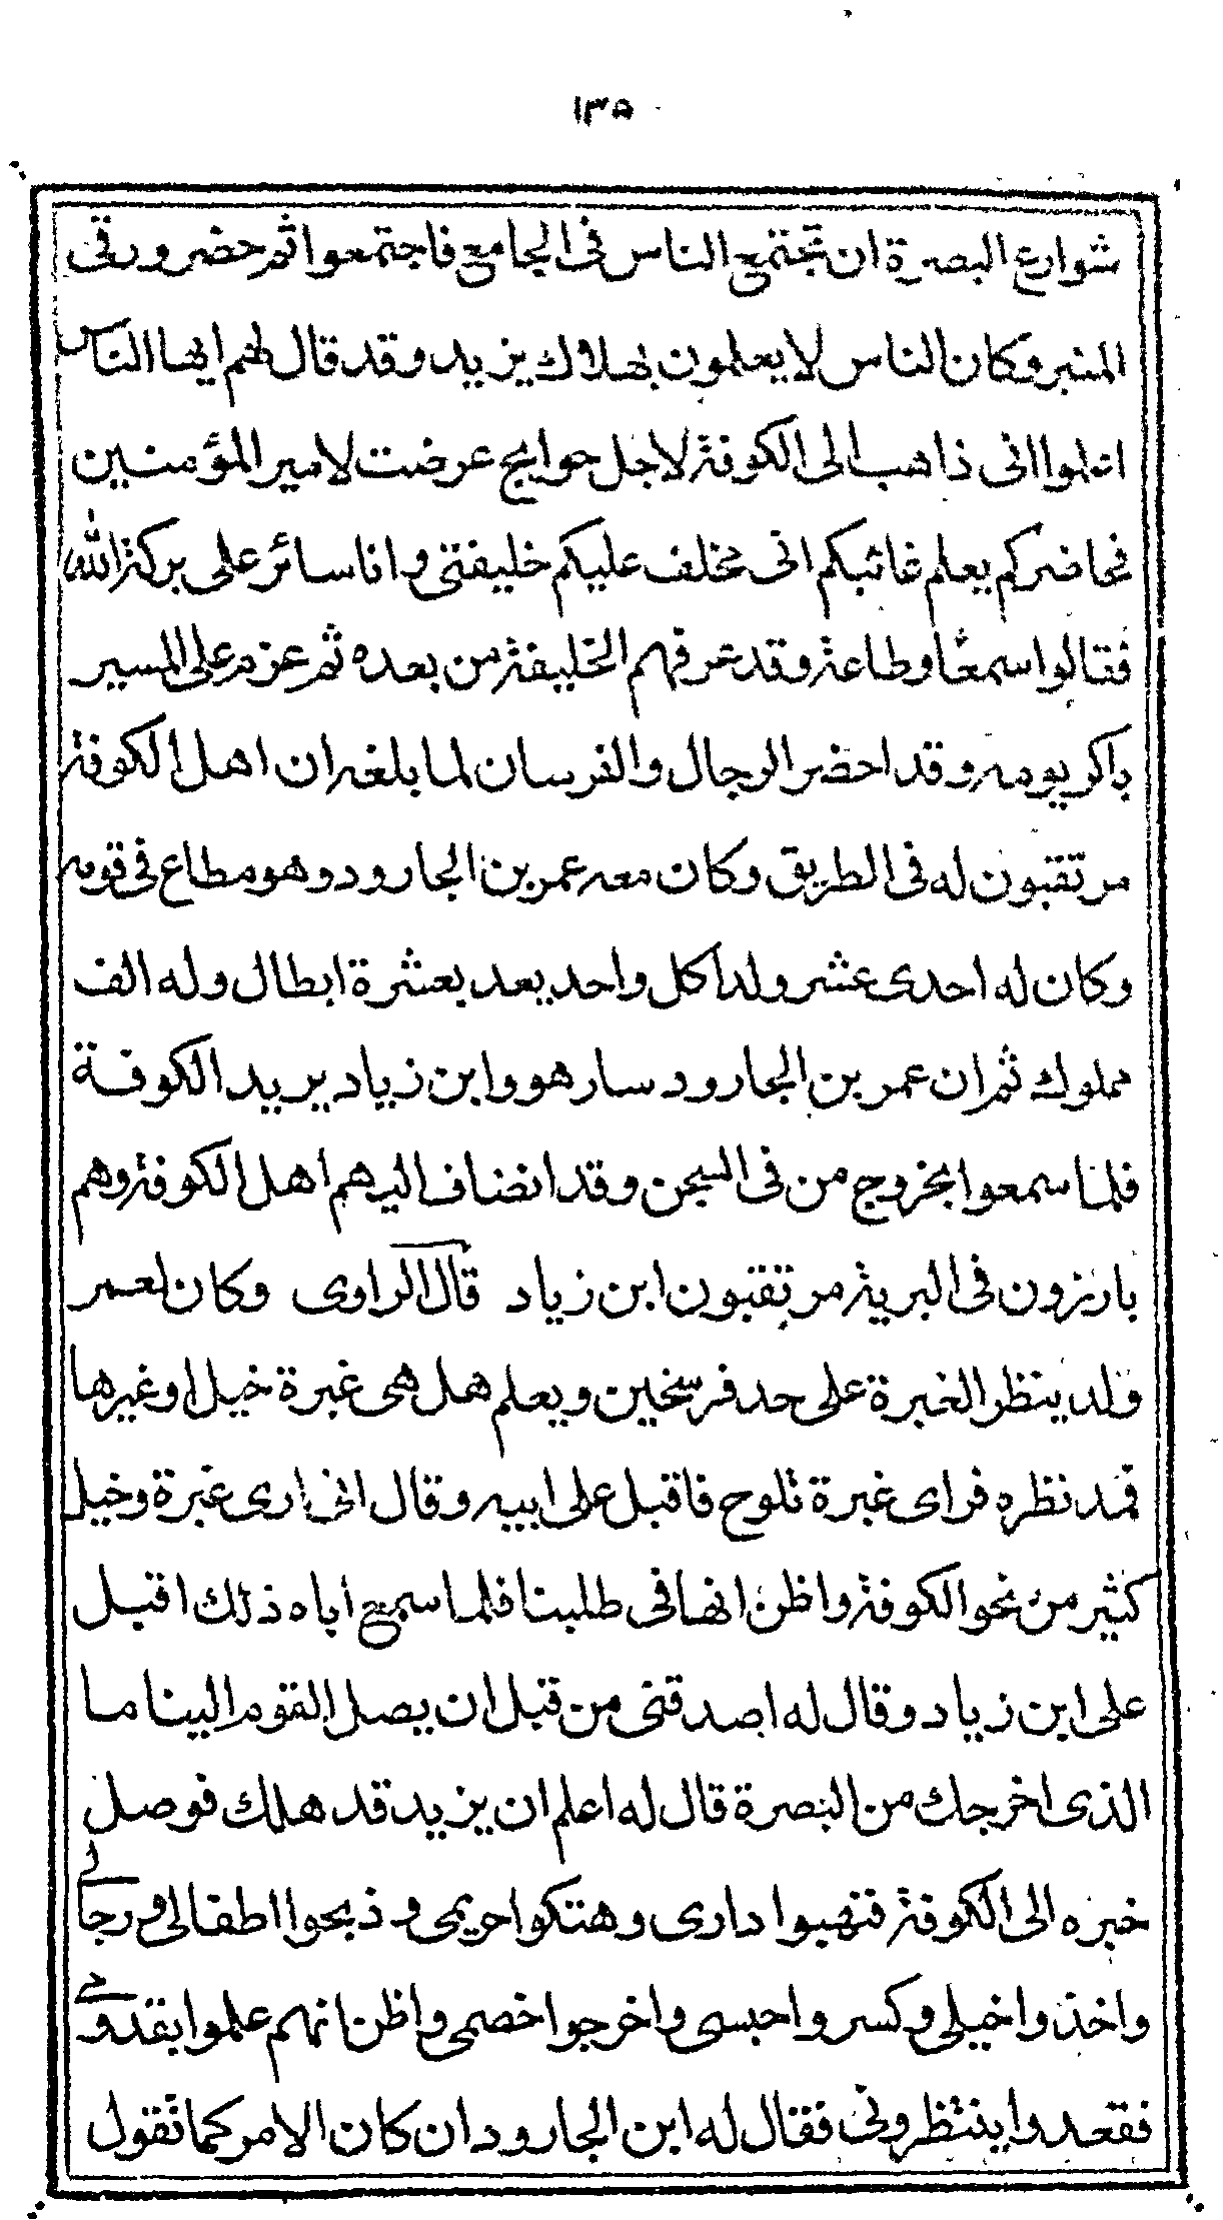 ١٣٥
شوارع البصرة ان تجتمع الناس فى الجامع فاجتمعوا ثم حضر ورقى
المنبر وكان الناس لا يعلمون بهلاك يزيد وقد قال لهم ايها الناس
اعلموا انى ذاهب الى الكوفة لاجل حوايج عرضت لامير المؤمنين
فحاضركم يعلم غائبكم انى مخلف عليكم خليفتى وانا سائر على بركة الله
فقالوا سمعًا وطاعة وقد عرفهم الخليفة من بعده ثم عزم على المسير
باكر يومه وقد احضر الرجال والفرسان لما بلغه ان اهل الكوفة
مرتقبون له فى الطريق وكان معه عمر بن الجارود وهو مطاع فى قومه
وكان له احدى عشر ولدا كل واحد يعد بعشرة ابطال وله الف
مملوك ثم ان عمر بن الجارود سار هو وابن زياد يريد الكوفة
فلما سمعوا بخروج من فى السجن وقد انضاف اليهم اهل الكوفة وهم
بارزون فى البرية مرتقبون ابن زياد قال الراوى وكان لعمر
ولد ينظر الغبرة على حد فرسخين ويعلم هل هى غبرة خيل او غيرها
فمد نظره فراى غبرة تلوح فاقبل على ابيه وقال انى ارى غبرة وخيل
كثير من نحو الكوفة واظن انها فى طلبنا فلما سمع اباه ذلك اقبل
على ابن زياد وقال له اصدقنى من قبل ان يصل القوم الينا ما
الذى اخرجك من البصرة قال له اعلم ان يزيد قد هلك فوصل
خبره الى الكوفة فنهبوا دارى وهتكوا حريمى وذبحوا اطفالى ورجالى
واخذوا خيلى وكسروا حبسى واخرجوا خصمى واظن انهم علموا بقدومى
فقعدوا ينتظرونى فقال له ابن الجارود ان كان الامر كما تقول